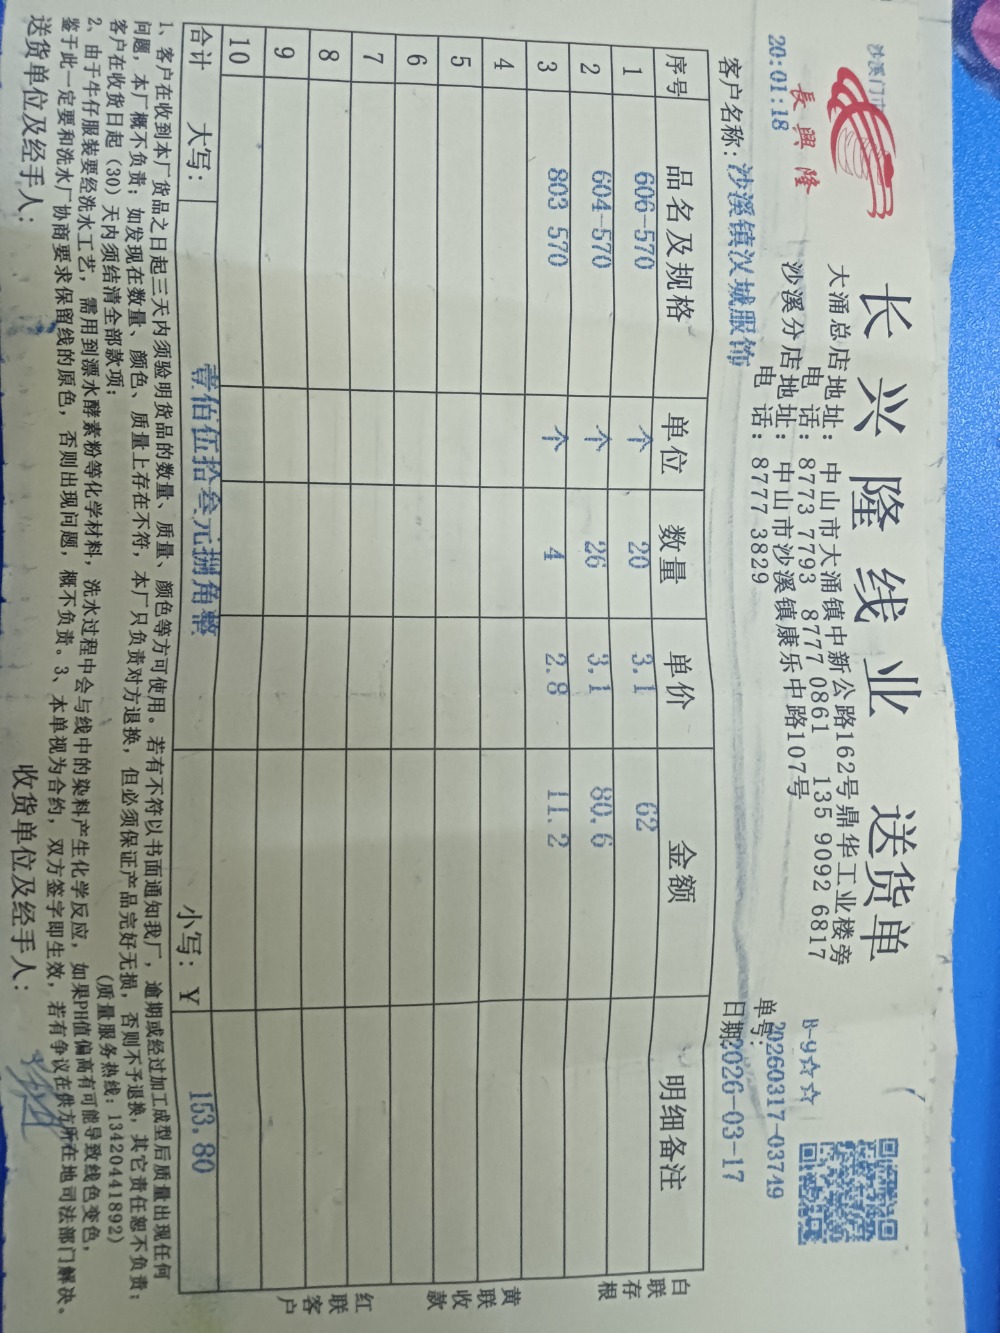 沙溪门市
長興隆
20:01:18
长兴隆线业 送货单
大涌总店地址：中山市大涌镇中新公路162号鼎华工业楼旁
电 话：8773 7793 8777 0861 135 9092 6817
沙溪分店地址：中山市沙溪镇康乐中路107号
电 话：8777 3829
B-9☆☆
单号：20260317-03749
客户名称：沙溪镇汉城服饰 日期：2026-03-17
序号 品名及规格 单位 数量 单价 金额 明细备注
1 606-570 个 20 3.1 62
2 604-570 个 26 3.1 80.6
3 803 570 个 4 2.8 11.2
4
5
6
7
8
9
10
合计 大写： 壹佰伍拾叁元捌角整 小写：￥ 153.80
白联存根
黄联收款
红联客户
1、客户在收到本厂货品之日起三天内须验明货品的数量、质量、颜色等方可使用。若有不符以书面通知我厂，逾期或经过加工成型后质量出现任何
问题，本厂概不负责；如发现在数量、颜色、质量上存在不符，本厂只负责对方退换，但必须保证产品完好无损，否则不予退换，其它责任恕不负责；
客户在收货日起（30）天内须结清全部款项； （质量服务热线：13420441892）
2、由于牛仔服装要经洗水工艺，需用到漂水酵素粉等化学材料，洗水过程中会与线中的染料产生化学反应，如果PH值偏高有可能导致线色变色，
鉴于此一定要和洗水厂协商要求保留线的原色，否则出现问题，概不负责。3、本单视为合约，双方签字即生效，若有争议在供方所在地司法部门解决。
送货单位及经手人： 收货单位及经手人：